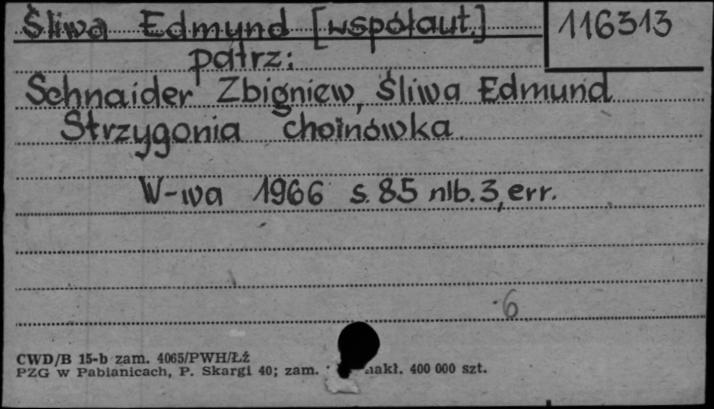 Śliwa Edmund [współaut.] 116313
patrz:
Schnaider Zbigniew, Śliwa Edmund
Strzygonia choinówka
W-wa 1966 s. 85 nlb. 3, err.
6
CWD/B 15-b zam. 4065/PWH/Łź
PZG w Pabianicach, P. Skargi 40; zam. nakł. 400 000 szt.